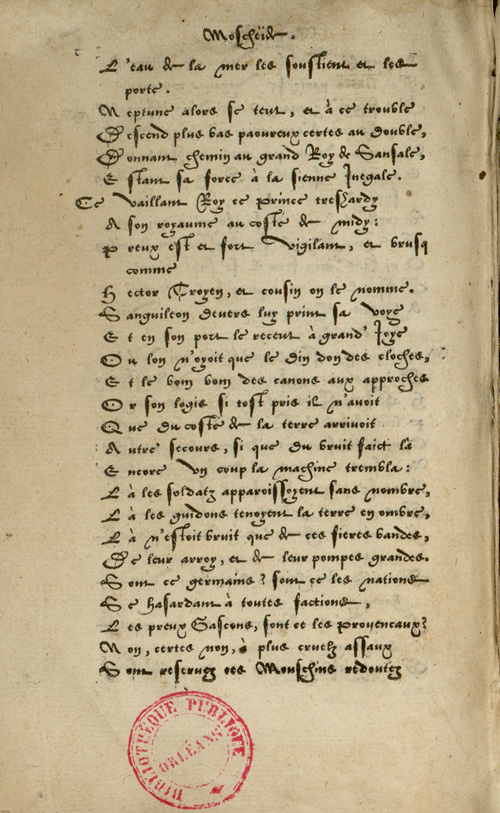 Moscheïde.
L'eau de la mer les soustient et les
porte.
Neptune alors se teut, et à ce trouble
Descend plus bas paoureux certes au double,
Donnant chemin au grand Roy de Sansale,
Estant sa force à la sienne Inegale.
Ce vaillant Roy ce prince treshardy
A son royaume au costé de midy:
Preux est et fort vigilant, et brusq
comme
Hector Troyen, et cousin on le nomme.
Sanguileon devers luy print sa voye
Et en son port le receut à grand' Joye
Ou lon n'oyoit que le din don des cloches,
Et le bom bom des canons aux approches
Or son logis si tost pris il n'avoit
Que du costé de la terre arrivoit
Autre secours, si que du bruit faict là
Encore un coup la machine trembla:
Là les soldatz apparoissoyent sans nombre,
Là les guidons tenoyent la terre en ombre,
Là n'estoit bruit que de ces fieres bandes,
De leur arroy, et de leur pompes grandes.
Sont ce germains? sont ce les nations
Se hasardant à toutes factions,
Les preux Gascons, sont ce les provencaux?
Non, certes non, à plus cruelz assaux
Sont reservez ces Mouschins redoutez
BIBLIOTHÈQUE PUBLIQUE
ORLÉANS